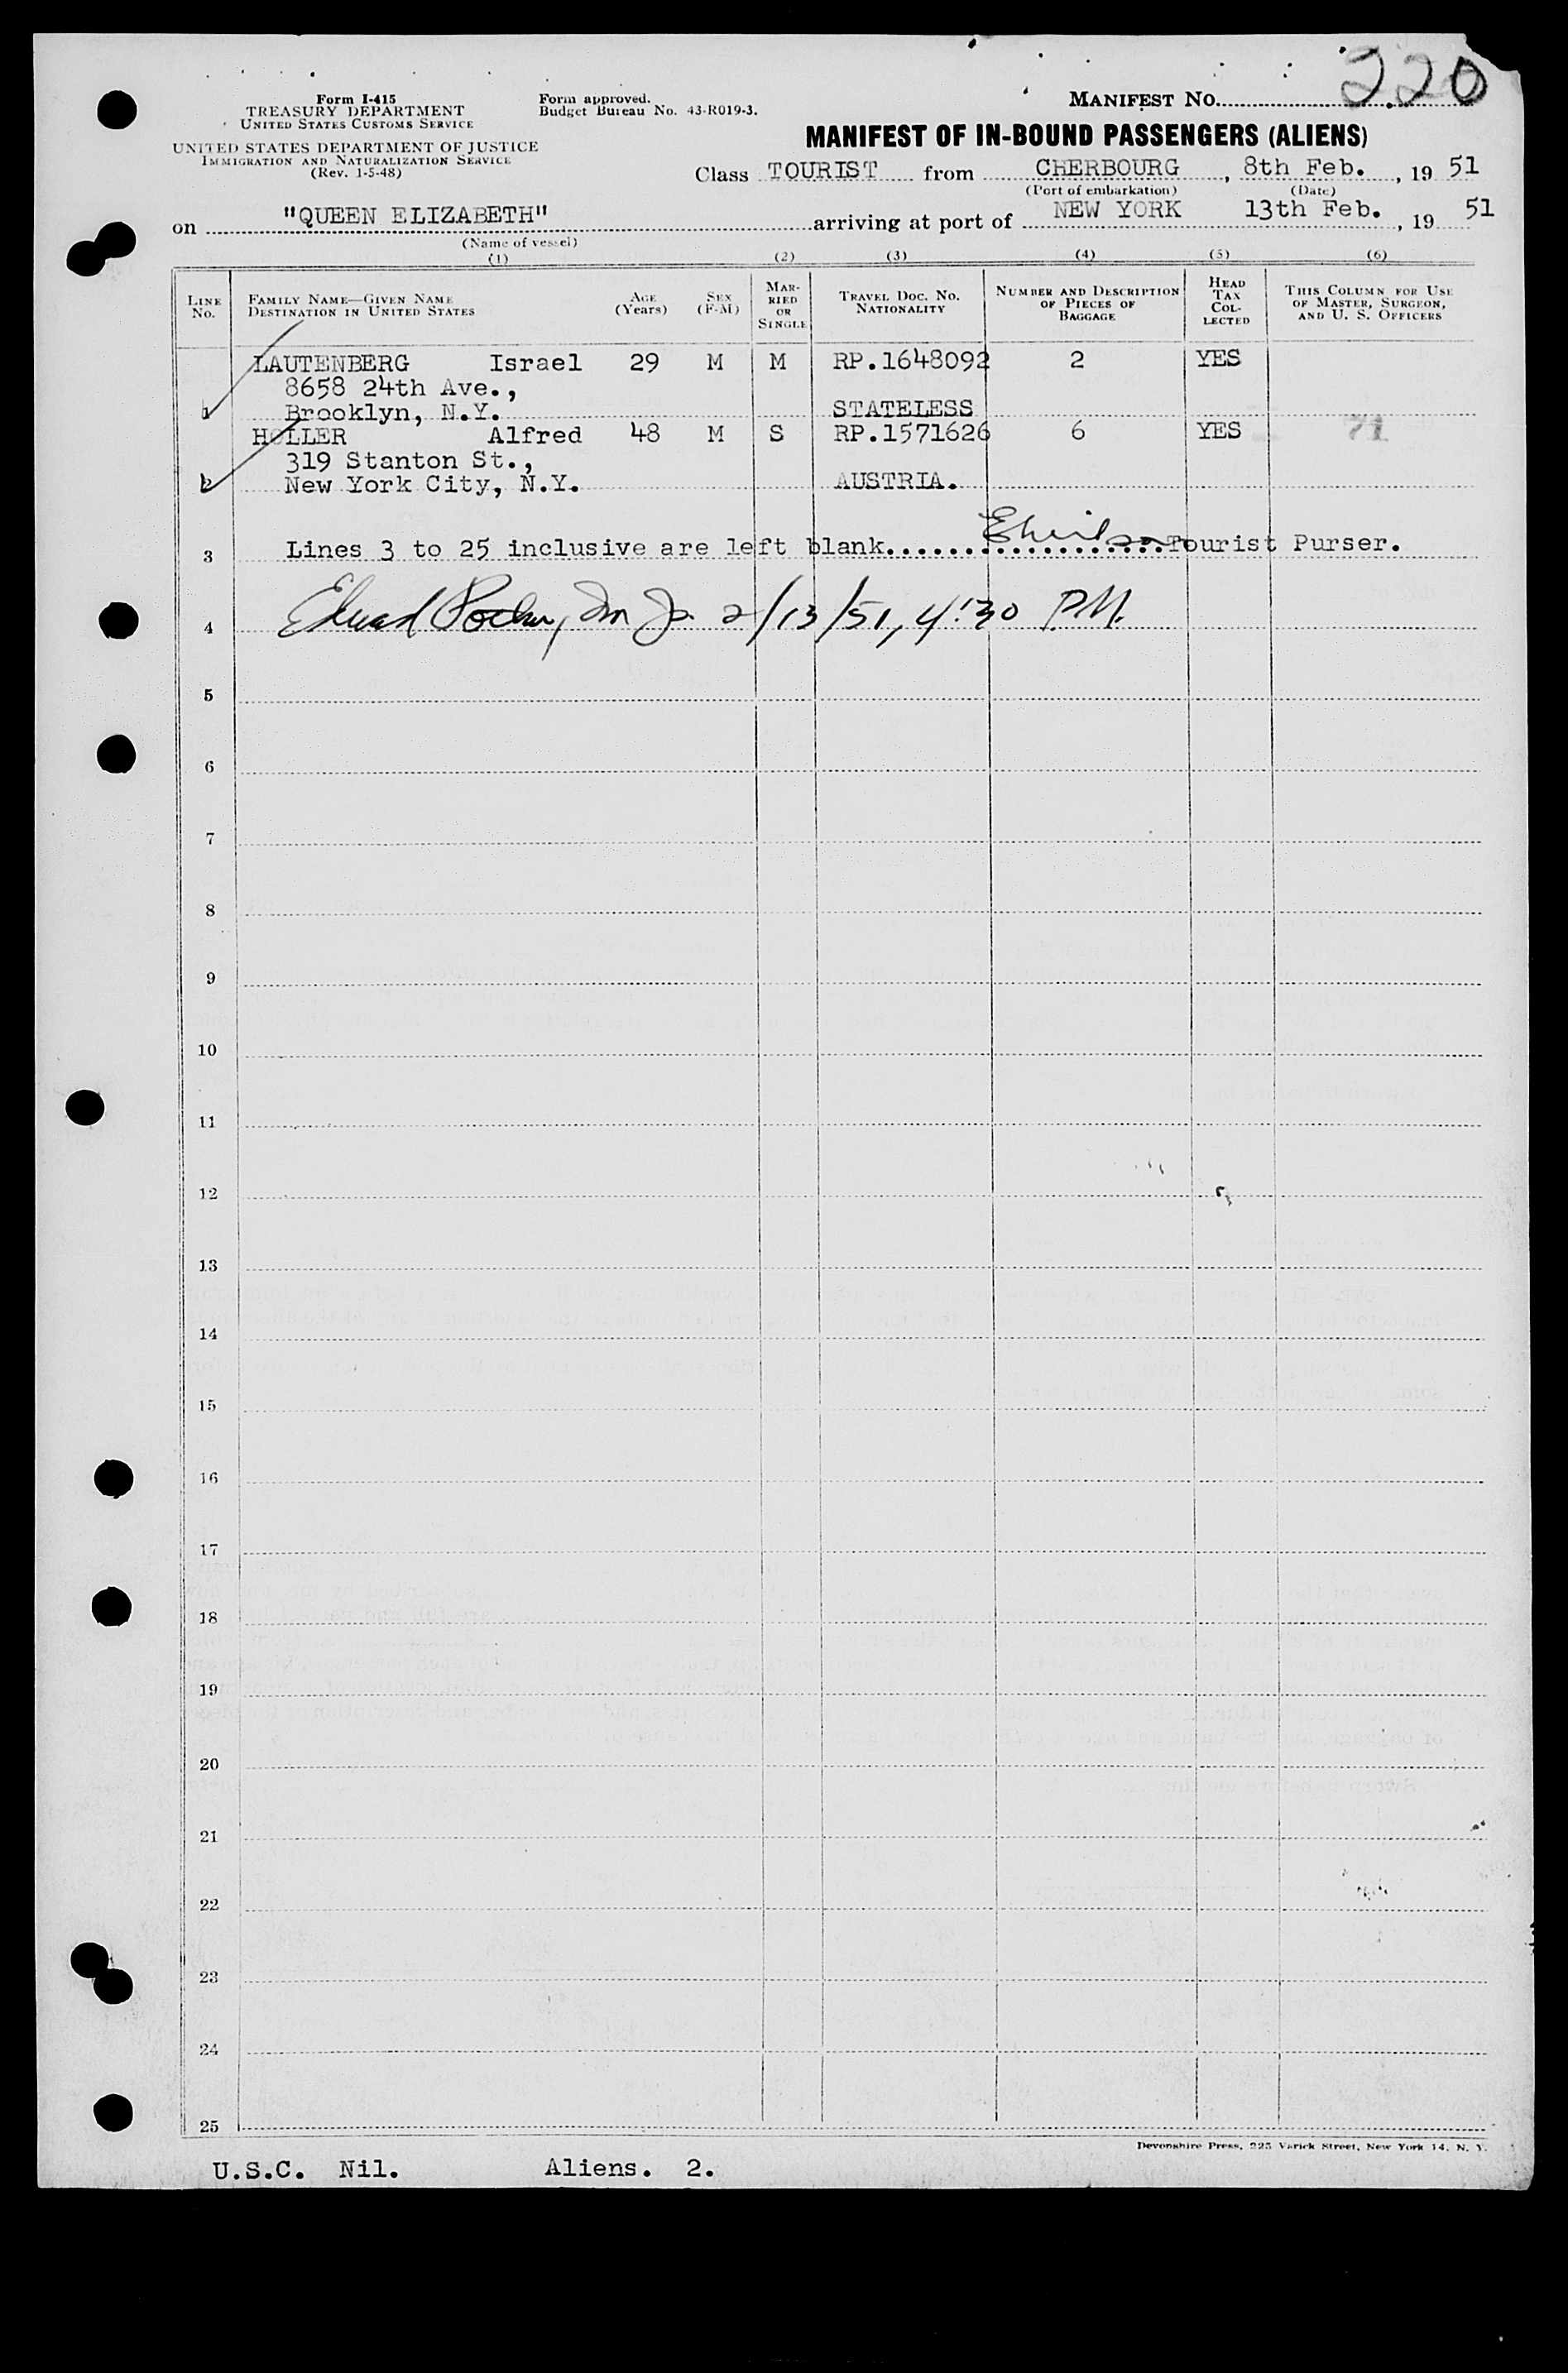 220
Form I-415
TREASURY DEPARTMENT
UNITED STATES CUSTOMS SERVICE
UNITED STATES DEPARTMENT OF JUSTICE
IMMIGRATION AND NATURALIZATION SERVICE
(Rev. 1-5-48)
Form approved.
Budget Bureau No. 43-R019-3.
MANIFEST No.
MANIFEST OF IN-BOUND PASSENGERS (ALIENS)
Class TOURIST from CHERBOURG, 8th Feb., 19 51
(Port of embarkation) (Date)
on "QUEEN ELIZABETH" arriving at port of NEW YORK 13th Feb., 19 51
(Name of vessel)
(1) (2) (3) (4) (5) (6)
LINE No. FAMILY NAME—GIVEN NAME DESTINATION IN UNITED STATES AGE (Years) SEX (F-M) MARRIED OR SINGLE TRAVEL DOC. No. NATIONALITY NUMBER AND DESCRIPTION OF PIECES OF BAGGAGE HEAD TAX COLLECTED THIS COLUMN FOR USE OF MASTER, SURGEON, AND U. S. OFFICERS
LAUTENBERG Israel 29 M M RP.1648092 2 YES
8658 24th Ave.,
1 Brooklyn, N.Y. STATELESS
HOLLER Alfred 48 M S RP.1571626 6 YES 71
319 Stanton St.,
2 New York City, N.Y. AUSTRIA.
3 Lines 3 to 25 inclusive are left blank..................Tourist Purser.
4 2/13/51, 4:30 P.M.
5
6
7
8
9
10
11
12
13
14
15
16
17
18
19
20
21
22
23
24
25
Devonshire Press, 225 Varick Street, New York 14, N. Y.
U.S.C. Nil. Aliens. 2.